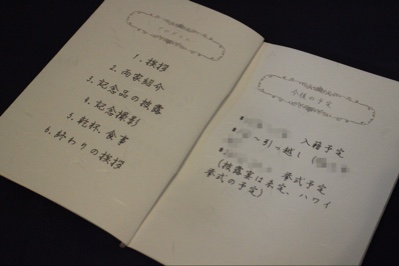 1. 挨拶
2. 両家紹介
3. 記念品の披露
4. 記念撮影
5. 乾杯、食事
6. 終わりの挨拶
今後の予定
入籍予定
〜引っ越し (
挙式予定
(披露宴は未定、ハワイ
挙式の予定)